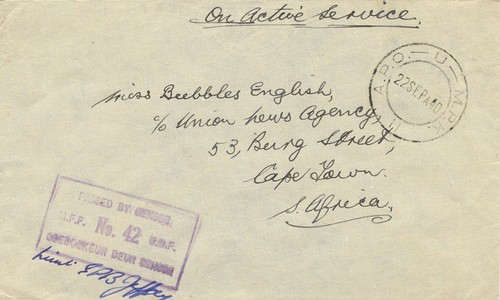 On Active Service.
A.P.O. - U - M.P.K. 11
22 SEP 40
Miss Bubbles English,
c/o Union News Agency,
53, Burg Street,
Cape Town.
S. Africa.
PASSED BY CENSOR
U.F.F. No. 42 U.D.F.
DEUR SENSOR